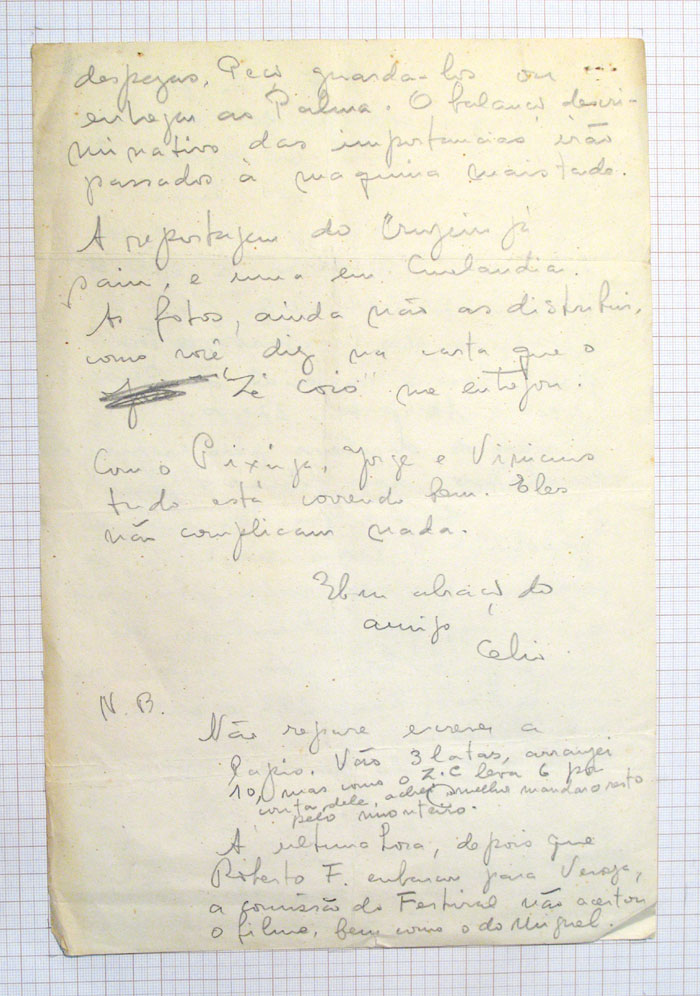 despezas. Peço guarda-los ou
entregar ao Palma. O balanço descri-
minativo das importancias irão
passados à maquina mais tarde.
A reportagem do Cruzeiro já
saiu, e uma em Cinelandia.
As fotos, ainda não as distribui,
como você diz na carta que o
"Zé coió" me entregou.
Com o Pixinga, Jorge e Vinicius
tudo está correndo bem. Eles
não complicam nada.
abraço do
amigo
Celio
N.B.
Não repare escrever a
lapis. Vão 3 latas, arranjei
10, mas como o Z.C leva 6 por
conta dele, achei melhor mandar o resto
pelo monteiro.
A ultima hora, depois que
Roberto F. embarcou para
a comissão do Festival não aceitou
o filme, bem como o do Miguel.